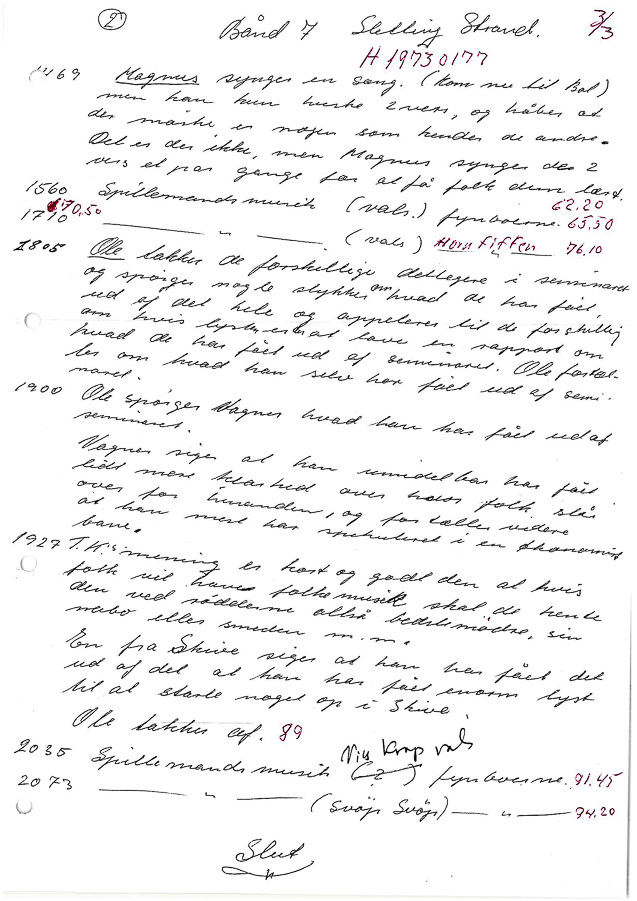 2 Bånd 7 Slelling Strand. 3/3
H 19730177
1469 Magnus synger en sang. (Kom nu til Bal)
men han kun huske 2 vers, og håber at
der måske er nogen som kender de andre.
Det er der ikke, men Magnus synger de 2
vers et par gange for at få folk dem lært.
1560 Spillemandsmusik (vals.) fynboerne. 62.20
1710 70,50 — " — (vals) Hornfiffen 65.50
76.10
1805 Ole takker de forskellige deltagere i seminaret
og spørger nogle stykker om hvad de har fået
ud af det hele og appelerer til de forskellig
om hvis lysten er at lave en rapport om
hvad de har fået ud af seminaret. Ole fortæl-
ler om hvad han selv har fået ud af semi-
naret.
1900 Ole spørger Vagner hvad han har fået ud af
seminaret.
Vagner siger at han umidelbar har fået
lidt mere klarhed over hvor folk står
over for hinanden, og fortæller videre
at han mest har spekuleret i en økonomisk
bane.
1927 T.K's mening er kort og godt den at hvis
folk vil have folkemusik skal de hente
den ved rødderne altså bedstemødre, sin
nabo eller smeden m.m.
En fra Skive siger at han har fået det
ud af det at han har fået enorm lyst
til at starte noget op i Skive.
Ole takker af. 89
Krap vals
2035 Spillemandsmusik (?) fynboerne. 91.45
2073 — " — (Svöjs Svöjs) — " — 94.20
Slut